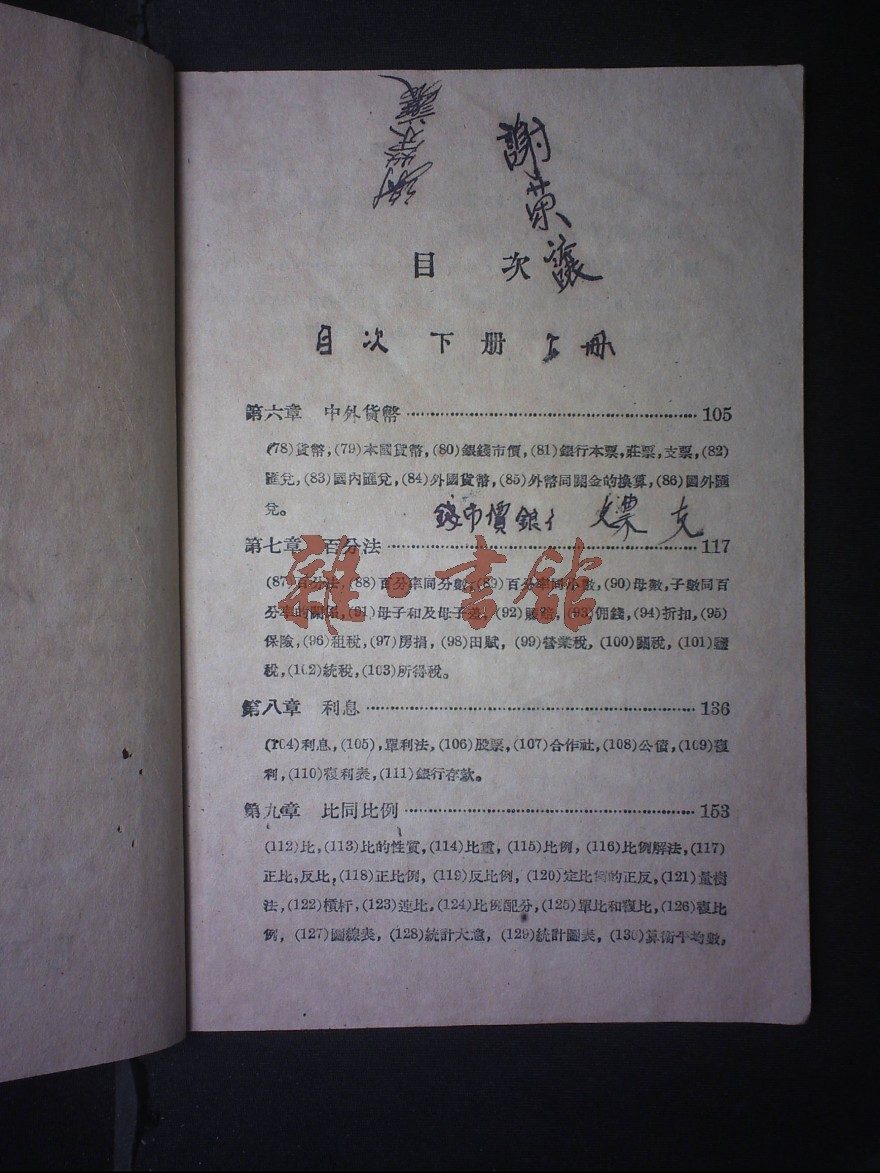 謝荣
目　次
目次　下册　下冊
第六章　中外貨幣………………………………………105
(78)貨幣,(79)本國貨幣,(80)銀錢市價,(81)銀行本票,莊票,支票,(82)
匯兌,(83)國內匯兌,(84)外國貨幣,(85)外幣同關金的換算,(86)國外匯
兌。
錢市價銀行　票　支
第七章　百分法………………………………………117
(87)百分法,(88)百分率同分數,(89)百分率同小數,(90)母數,子數同百
分率的關係,(91)母子和及母子差,(92)賺賠,(93)佣錢,(94)折扣,(95)
保險,(96)租稅,(97)房捐,(98)田賦,(99)營業稅,(100)關稅,(101)鹽
稅,(102)統稅,(103)所得稅。
第八章　利息………………………………………136
(104)利息,(105),單利法,(106)股票,(107)合作社,(108)公債,(109)複
利,(110)複利表,(111)銀行存款。
第九章　比同比例………………………………………153
(112)比,(113)比的性質,(114)比重,(115)比例,(116)比例解法,(117)
正比,反比,(118)正比例,(119)反比例,(120)定比例的正反,(121)量樹
法,(122)槓杆,(123)連比,(124)比例配分,(125)單比和複比,(126)複比
例,(127)圖線表,(128)統計大意,(129)統計圖表,(130)算術平均數,
雜·書館